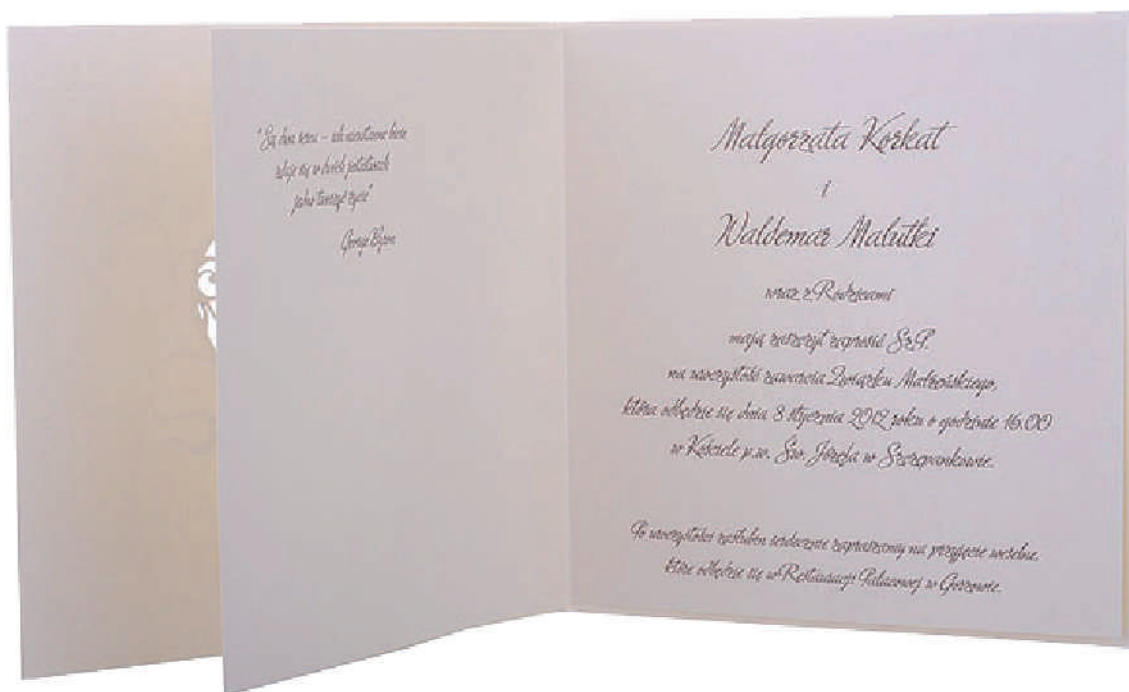 "Są dwa serca –
się w dwóch
jedno tworząc życie"
George Byron
Małgorzata Korkat
i
Waldemar Malutki
wraz z Rodzicami
mają zaszczyt zaprosić Sz.P.
na uroczystość zawarcia Związku Małżeńskiego,
która odbędzie się dnia 8 stycznia 2012 roku o godzinie 16.00
w Kościele p.w. Św. Józefa w Szczepankowie.
Po uroczystości zaślubin serdecznie zapraszamy na przyjęcie weselne,
które odbędzie się w Restauracji Pałacowej w Gorzowie.